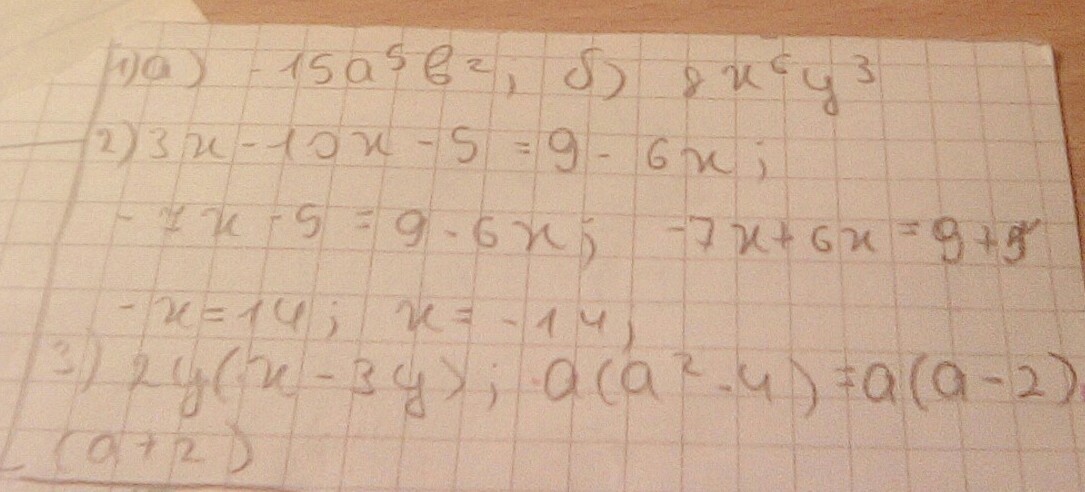 1) а) -15a⁵b²; б) 8x⁶y³
2) 3x - 10x - 5 = 9 - 6x;
-7x - 5 = 9 - 6x; -7x + 6x = 9 + 5
-x = 14; x = -14;
3) 2y(x - 3y); a(a² - 4) = a(a - 2)
(a + 2)